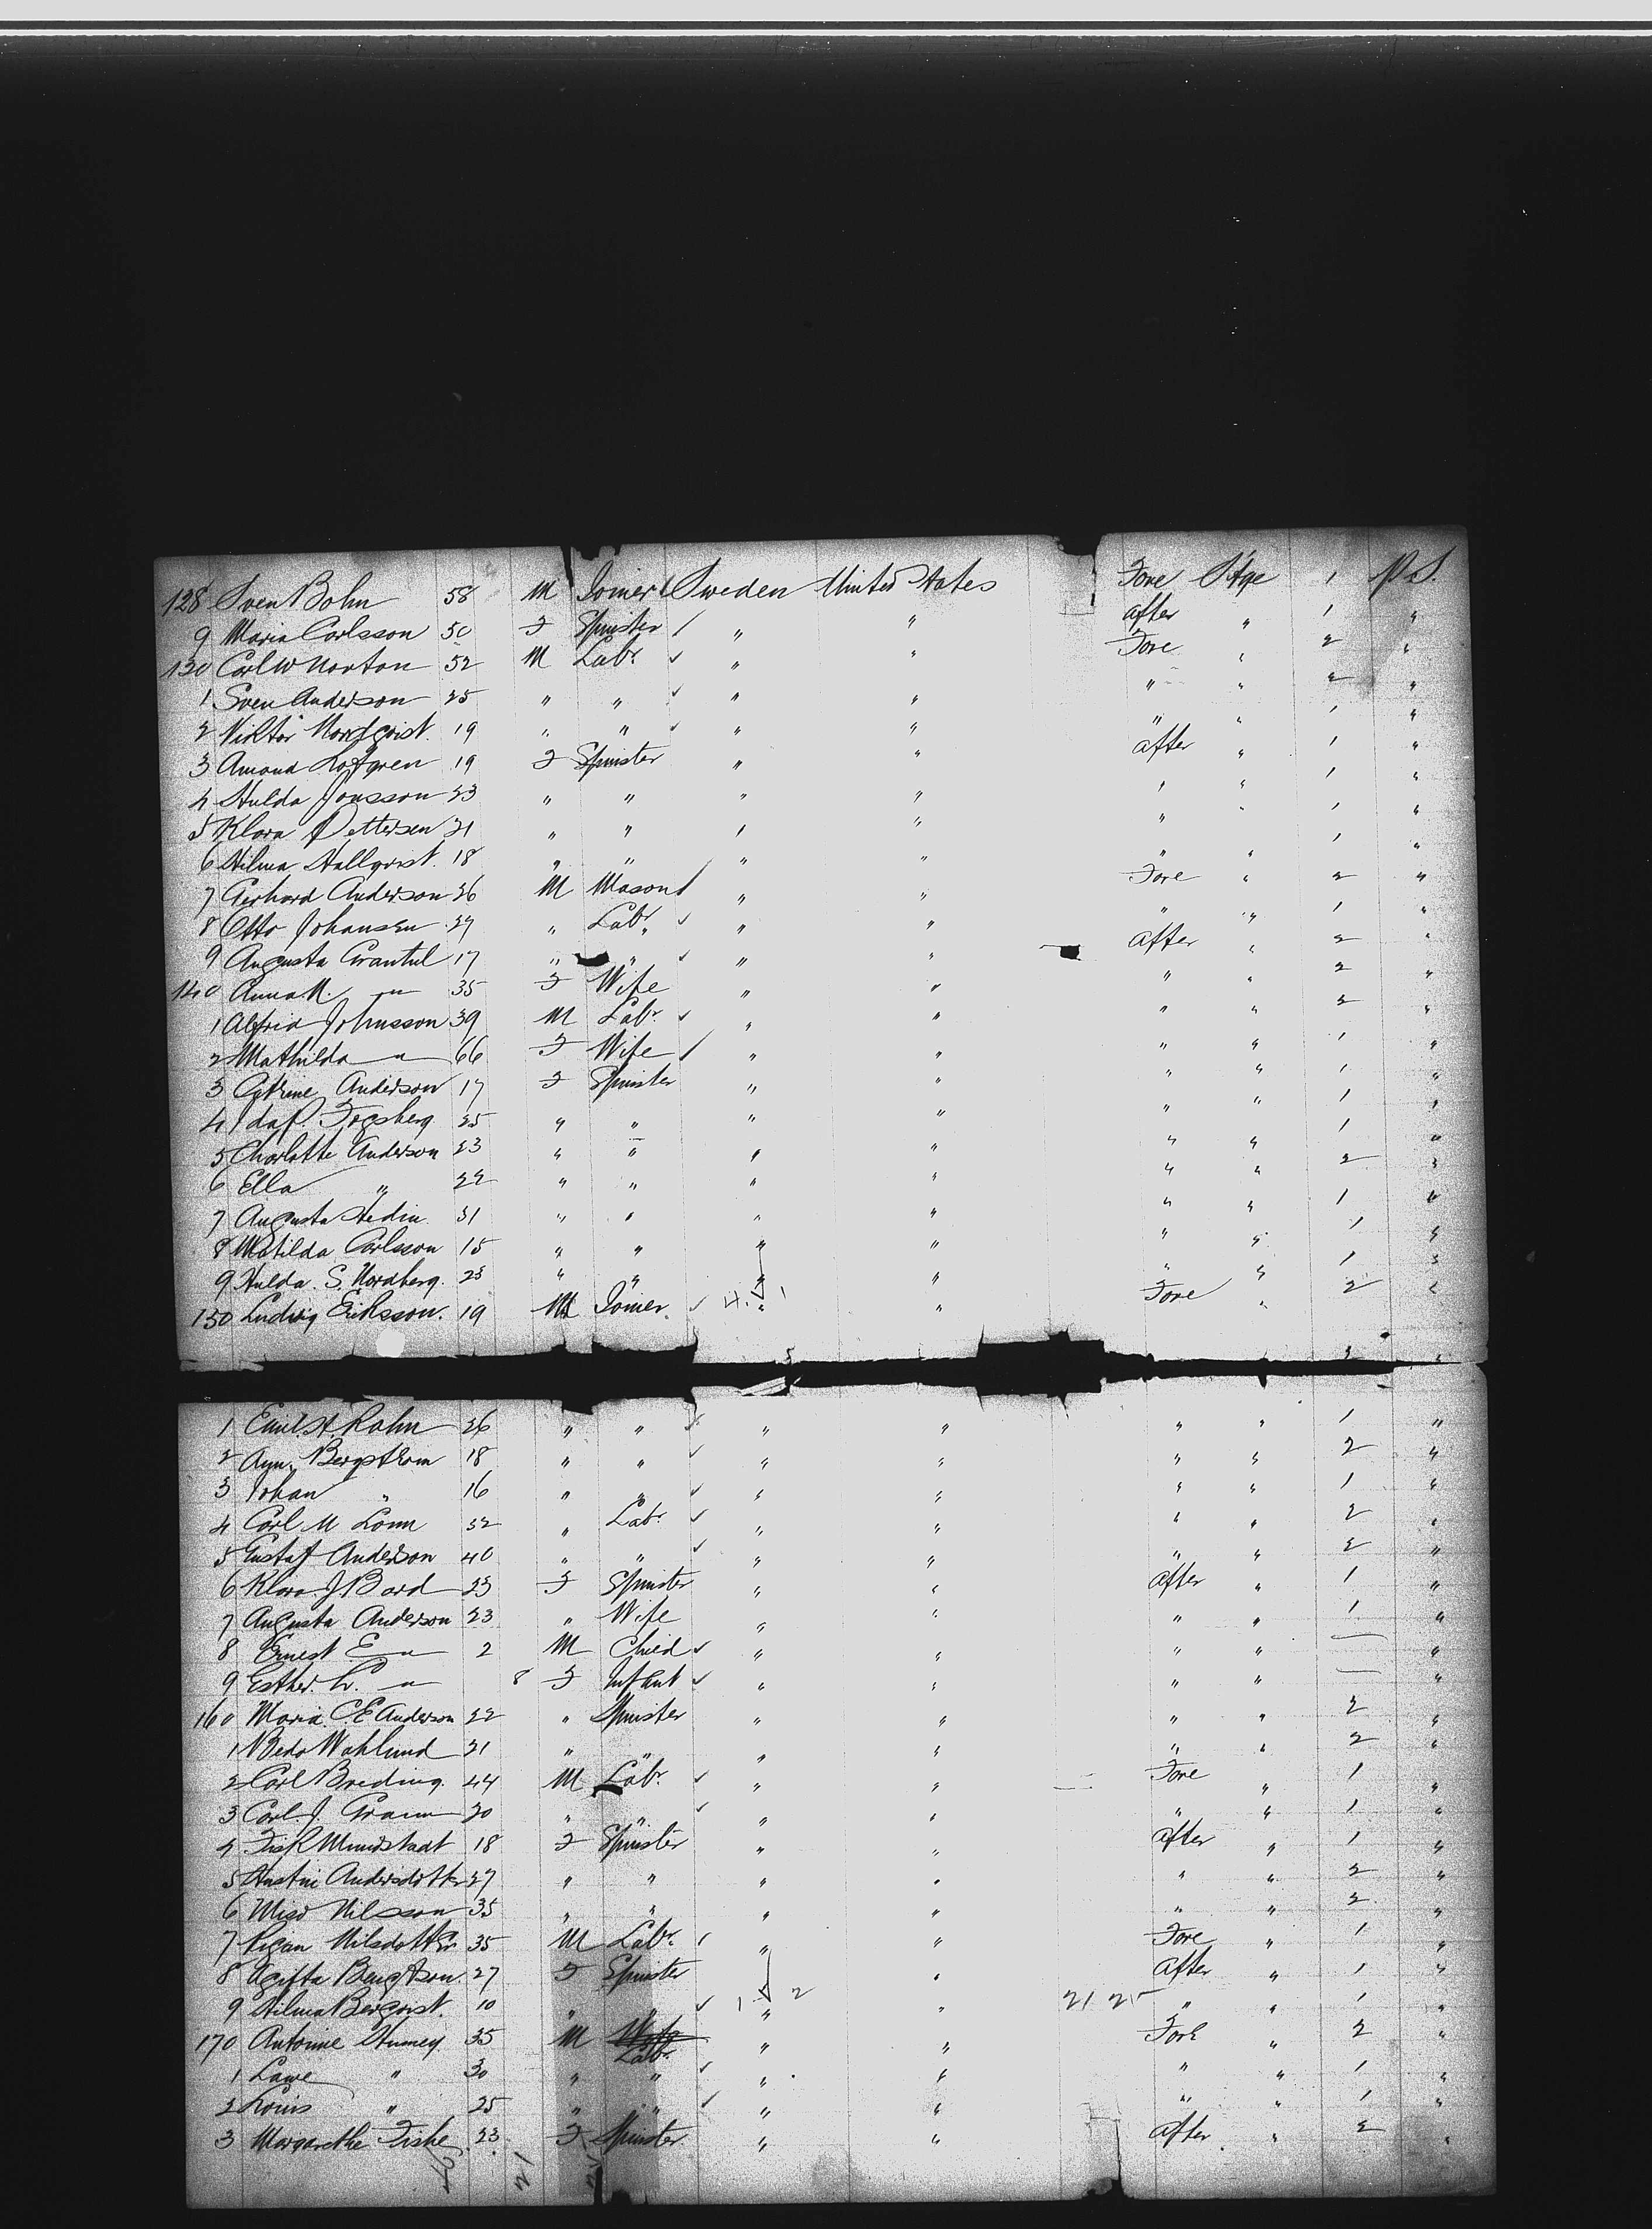 128 Sven Bohn 58 M Joiner Sweden United States Fore Stge 1 P.S.
9 Maria Carlsson 50 F Spinster " " after " 1 "
130 Carl W Norton 52 M Labr " " Fore " 2 "
1 Sven Anderson 25 " " " " " " 2 "
2 Viktor Nordqvist 19 " " " " " " 1 "
3 Amond Lofgren 19 F Spinster " " after " 1 "
4 Hulda Jonsson 23 " " " " " " 1 "
5 Klara Pettersen 21 " " " " " " 1 "
6 Hilma Hallqvist 18 " " " " " " 1 "
7 Gerhard Anderson 26 M Mason " " Fore " 2 "
8 Otto Johansen 27 " Labr " " " " 1 "
9 Augusta 17 " " " " after " 2 "
140 Anna M. " 35 F Wife " " " " 2 "
1 Alfrid Johnsson 39 M Labr " " " " 2 "
2 Mathilda " 66 F Wife " " " " 1 "
3 Anderson 17 F Spinster " " " " 1 "
4 Ida 25 " " " " " " 1 "
5 Charlotte Anderson 23 " " " " " " 1 "
6 Ella " 22 " " " " " " 2 "
7 Augusta Hedin 31 " " " " " " 1 "
8 Matilda Carlsson 15 " " " " " " 1 "
9 Hulda S. Nordberg 23 " " " " " " 1 "
150 Ludvig Eriksson. 19 M Joiner 4. 1 " " Fore " 2 "
1 Rohn 26 " " " " " " 1 "
2 Bergstrom 18 " " " " " " 2 "
3 Johan " 16 " " " " " " 1 "
4 Carl M Lonn 32 " Labr " " " " 2 "
5 Gustaf Anderson 40 " " " " " " 2 "
6 Klara J Bard 23 F Spinster " " after " 1 "
7 Augusta Anderson 23 " Wife " " " " 1 "
8 Ernest E " 2 M Child " " " " — "
9 Esther " 8 F Infant " " " " — "
160 Maria C. E Anderson 22 " Spinster " " " " 2 "
1 Beda Wahlund 21 " " " " " " 2 "
2 Carl Breding 44 M Labr " " Fore " 1 "
3 Carl J. 20 " " " " " " 1 "
4 18 F Spinster " " after " 1 "
5 Andersdotter 27 " " " " " " 2 "
6 Nilsson 35 " " " " " " 2 "
7 Nilsdotter 35 M Labr " " Fore " 1 "
8 Bengtson 27 F Spinster " " After " 1 "
9 Hilma Bergvist. 10 " " 1 2 " " 21 25 " " 1 "
170 Antoine 35 M Wife Labr " " Fore " 2 "
1 " 30 " " " " " " 1 "
2 Louis " 25 " " " " " " 1 "
3 Margarethe Fishe 23 F Spinster " " after " 2 "